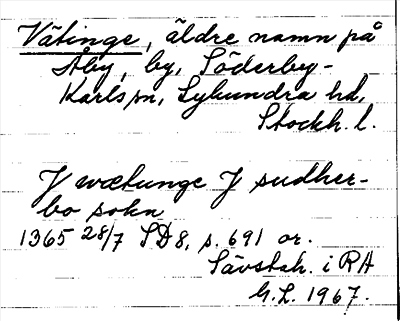 Vätinge, äldre namn på
Åby, by, Söderby-
Karls sn, Lyhundra hd,
Stockh. l.
J wætunge J sudher-
bo sokn
1365 28/7 SD8, s. 691 or.
Sävstah. i RA
G.L. 1967.